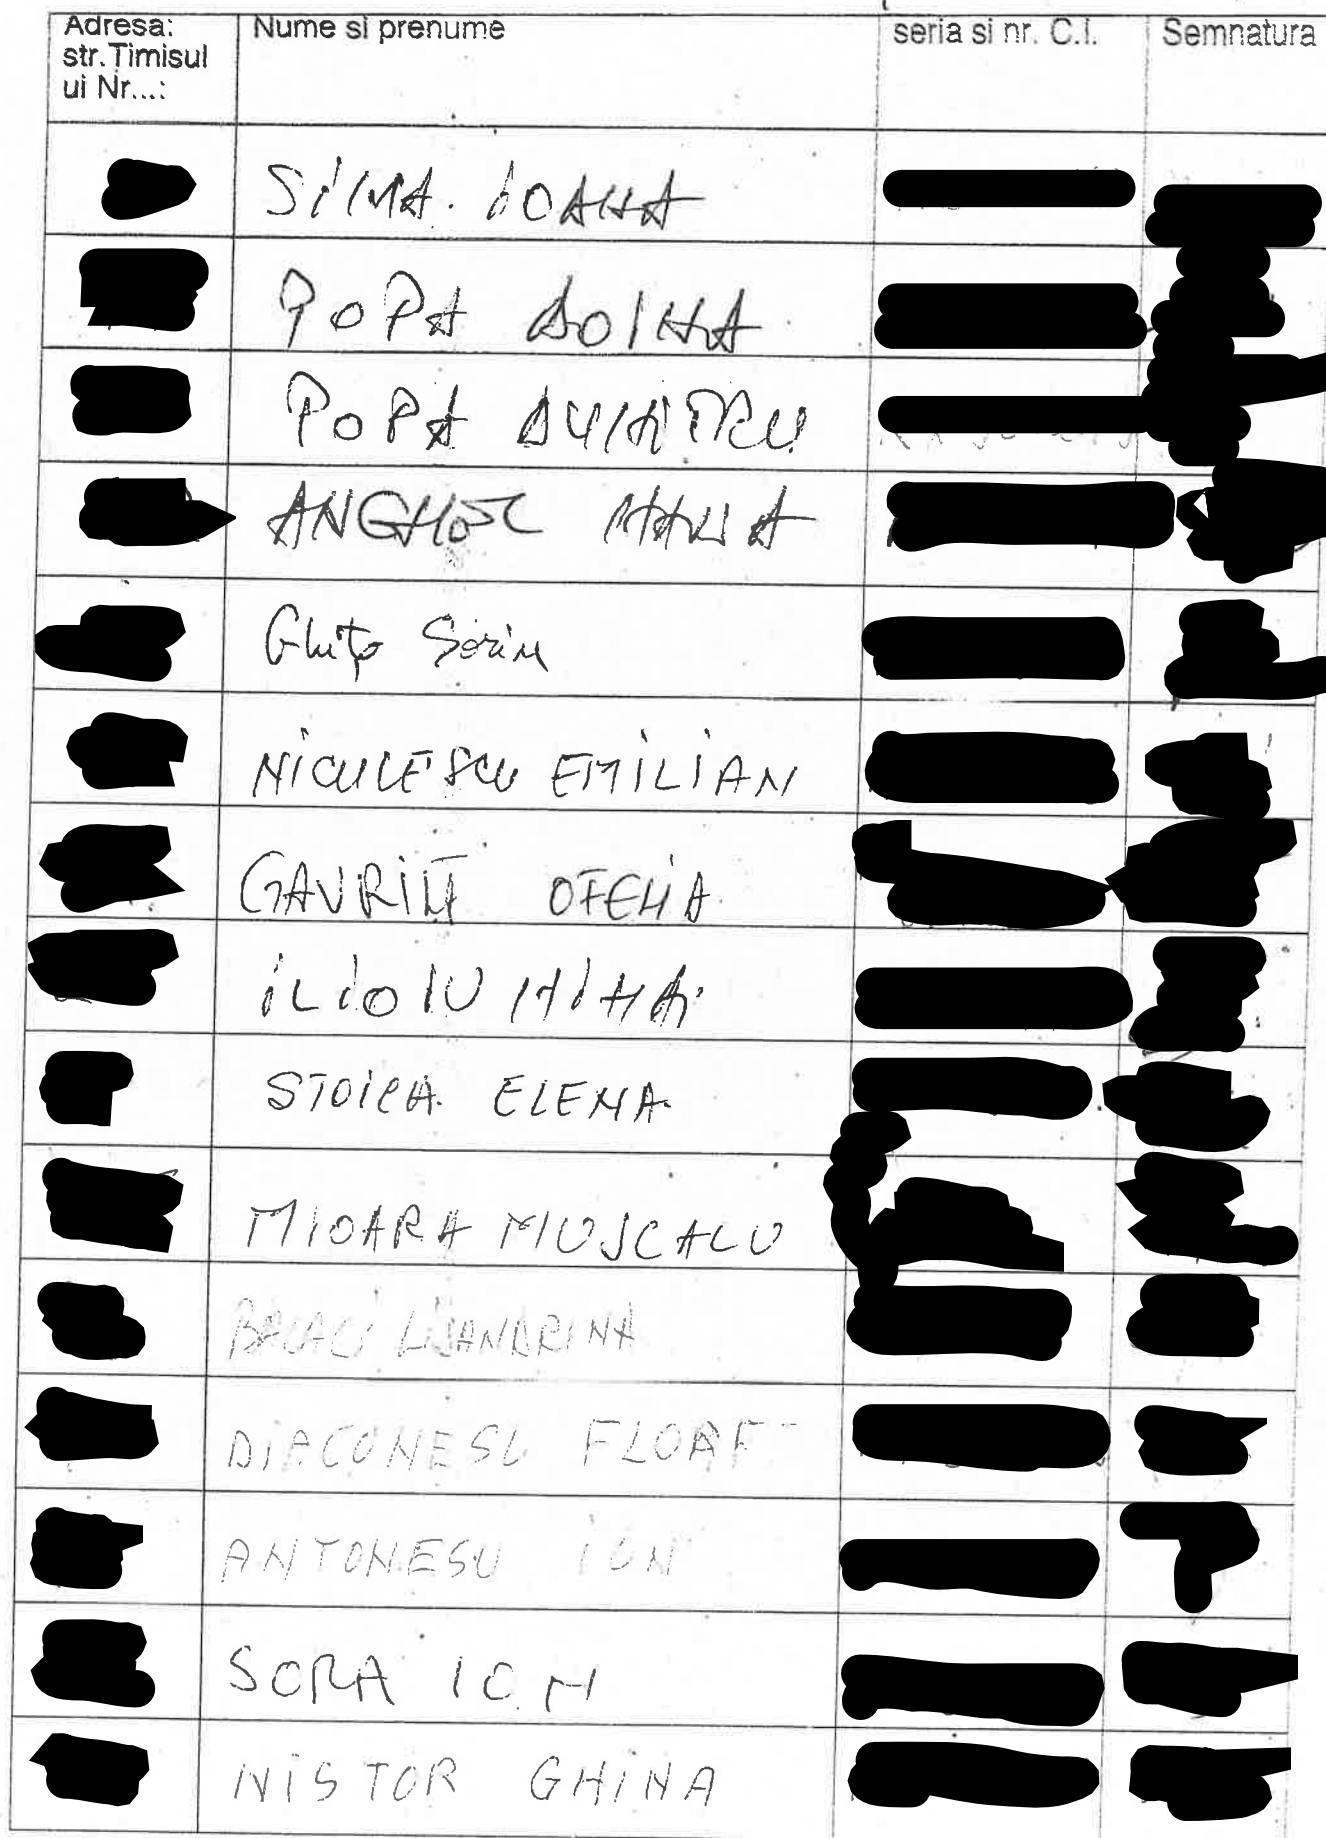 Adresa: Nume si prenume seria si nr. C.I. Semnatura
str.Timisul
ui Nr...:
SIMA. IOANA
POPA DOINA
POPA DUMITRU
ANGHEL MARIA
Ghiță Sorin
NICULESCU EMILIAN
GAVRILĂ OFELIA
ILIOIU MIHAI
STOICA ELENA
MIOARA MUSCALU
LISANDRINA
DIACONESC
ANTONESU ION
SORA ION
NISTOR GHINA